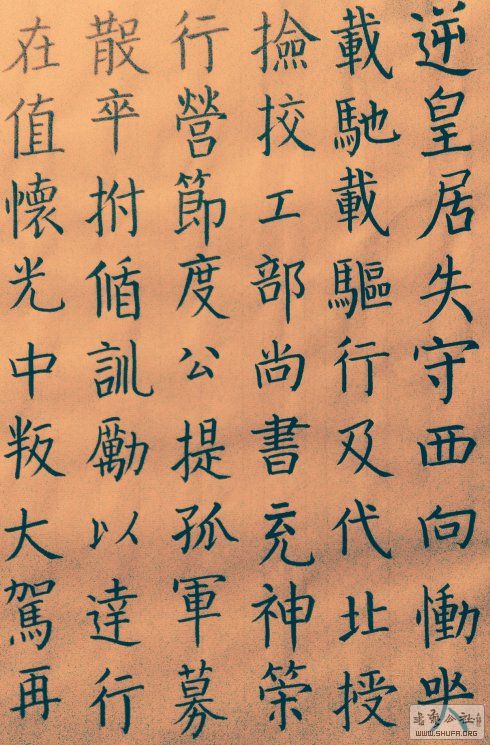 逆皇居失守西向慟哭
載馳載驅行及代北授
撿挍工部尚書充神策
行營節度公提孤軍募
散卒拊偱訓勵以達行
在值懷光中叛大駕再
WWW.SHUFA.ORG